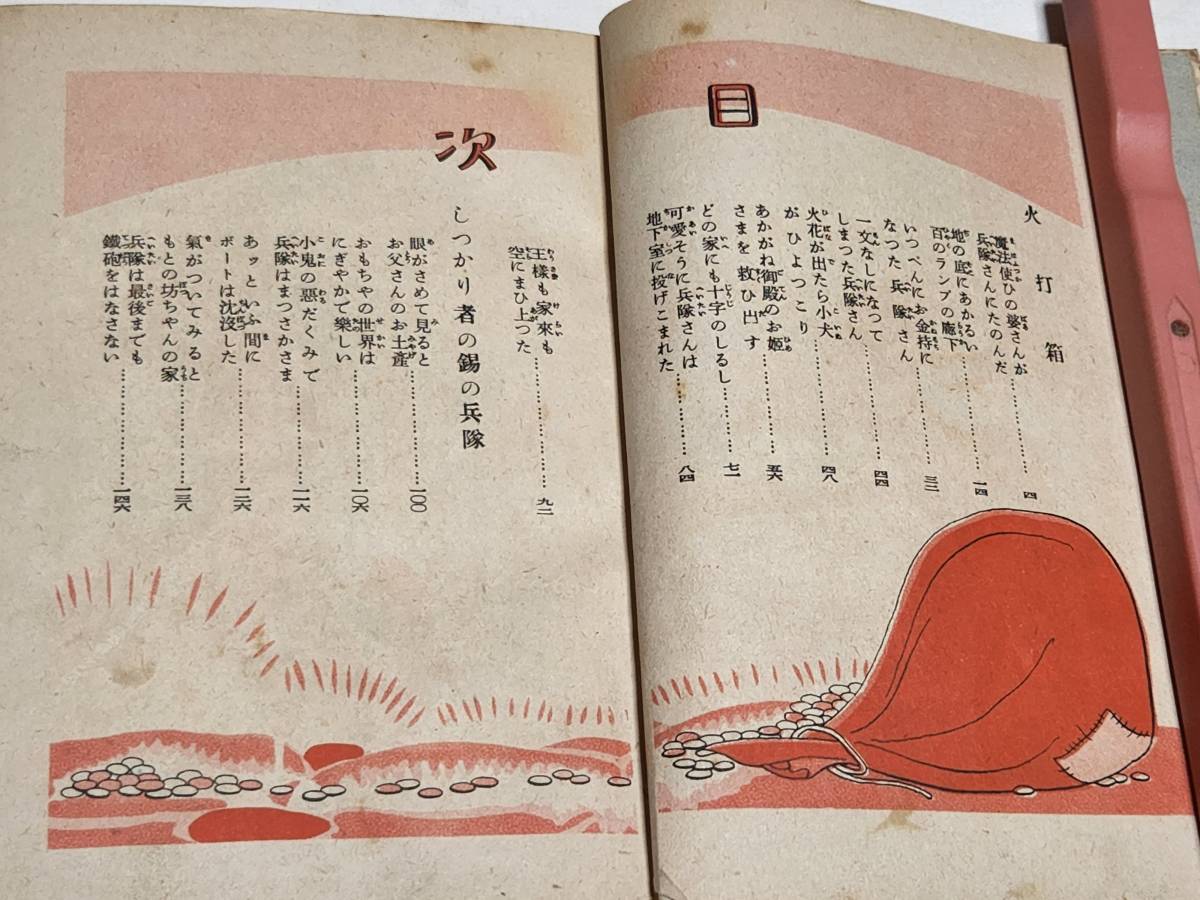 目次
火打箱
魔法使ひの婆さんが
兵隊さんにたのんだ……………四
地の底にあかるい
百のランプの廊下……………一四
いつぺんにお金持に
なつた兵隊さん……………三二
一文なしになつて
しまつた兵隊さん……………四四
火花が出たら小犬
がひよつこり……………四八
あかがね御殿のお姫
さまを救ひ出す……………五六
どの家にも十字のしるし……………七一
可愛そうに兵隊さんは
地下室に投げこまれた……………八四
王樣も家來も
空にまひ上つた……………九二
しつかり者の錫の兵隊
眼がさめて見ると
お父さんのお土產……………一〇〇
おもちやの世界は
にぎやかで樂しい……………一〇六
小鬼の惡だくみで
兵隊はまつさかさま……………一一六
あッといふ間に
ボートは沈沒した……………一二六
氣がついてみると
もとの坊ちやんの家……………一三八
兵隊は最後までも
鐵砲をはなさない……………一四六